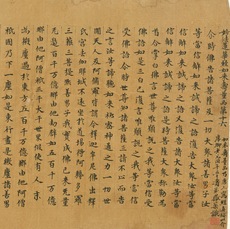 妙法蓮華經如來壽量品第十六
尒時佛告諸菩薩及一切大眾諸善男子汝
等當信解如來誠諦之語復告大眾汝等當
信解如來誠諦之語又復告諸大眾汝等當
信解如來誠諦之語是時菩薩大眾彌勒為
首合掌白佛言世尊唯願說之我等當信受
佛語如是三白已復言唯願說之我等當信
受佛語尒時世尊知諸菩薩三請不止而告
之言汝等諦聽如來祕密神通之力一切世
間天人及阿修羅皆謂今釋迦牟尼佛出釋
氏宮去伽耶城不遠坐於道場得阿耨多羅
三藐三菩提然善男子我實成佛已來无量
无邊百千萬億那由他劫譬如五百千萬億
那由他阿僧祇三千大千世界假使有人末
為微塵過於東方五百千萬億那由他阿僧
祇國乃下一塵如是東行盡是微塵諸善男